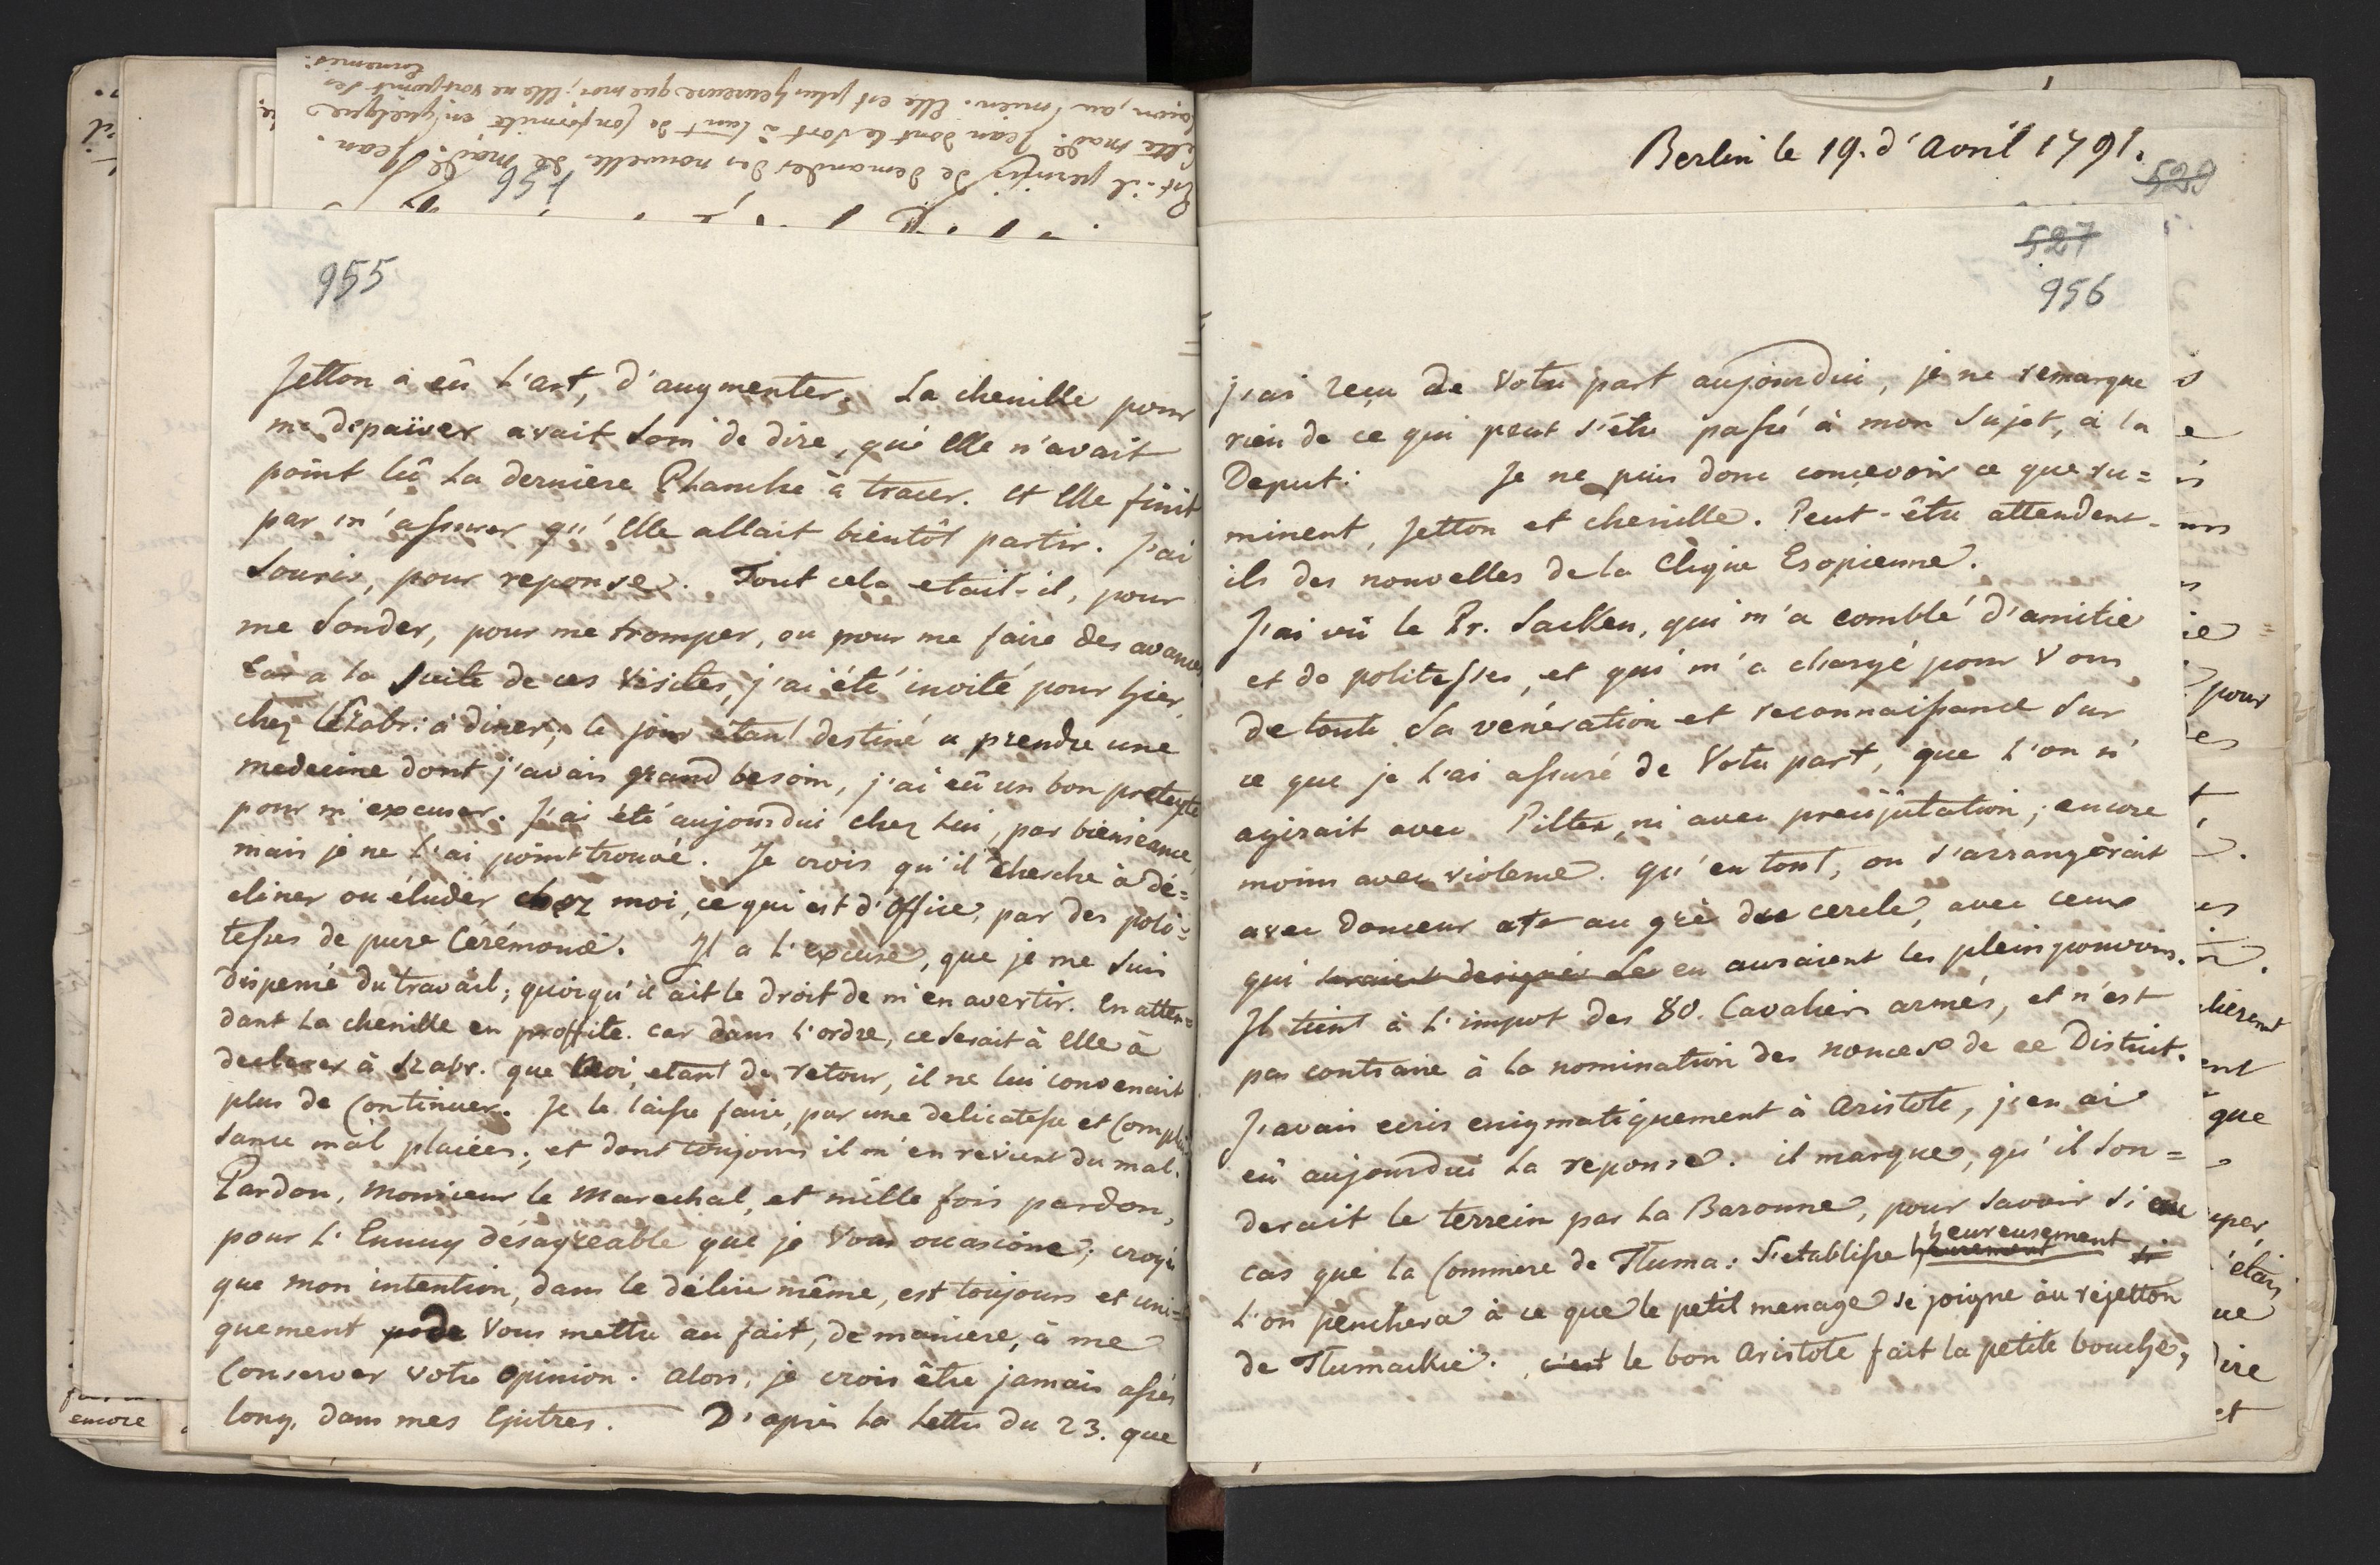 955
Jetton a eû l'art, d'augmenter. La chenille pour
me depaïser avait soin de dire, qu'elle n'avait
point lû la derniere Planche à tracer. et elle finit
par m'assurer qu'elle allait bientôt partir. J'ai
souris, pour reponse. Tout cela etait-il, pour
me sonder, pour me tromper, ou pour me faire des avances
a la suite de ces visites, j'ai été invité pour hier,
chez Szabr: à diner; le jour étant destiné a prendre une
medecine dont j'avais grand besoin, j'ai eû un bon pretexte
pour m'excuser. J'ai été aujourdui chez lui, par bienseance,
mais je ne l'ai point trouvé. Je crois qu'il cherche à dé=
cliner ou éluder chez moi, ce qui est d'office, par des poli=
tesses de pure Cérémonie. Il a l'excuse, que je me suis
dispensé du travail; quoiqu'il ait le droit de m'en avertir. En atten=
dant La chenille en proffite. car dans l'ordre, ce serait à elle à
declarer à Szabr. que Moi etant de retour, il ne lui convenait
plus de Continuer. Je le laisse faire, par une delicatesse et Complai
sance mal placées; et dont toujours il m'en revient du mal.
Pardon, Monsieur le Marechal, et mille fois pardon,
pour l'Ennuy désagreable que je Vous occasione; croyés
que mon intention, dans le délire même, est toujours et uni=
quement de Vous mettre au fait, de maniere, à me
Conserver votre opinion. alors, je crois être jamais assés
long, dans mes Epitres. D'après la Lettre du 23. que
Est-il permis de demander des nouvelles de Made. Jean.
Cette Made. Jean dont le sort a tant de conformité en quelque
façon, au mien. Elle est plus heureuse que moi; Elle ne
Berlin le 19. d'Avril 1791.
529
527
956
j'ai reçu de Votre part aujourdui, je ne remarque
rien de ce qui peut s'être passé à mon Sujet, à la
Deput: Je ne puis donc concevoir ce que ru=
minent, Jetton et chenille. Peut-être attendent-
ils des nouvelles de la Clique Esopienne.
J'ai vû le Pr. Sacken, qui m'a comblé d'amitie
et de politesses, et qui m'a chargé pour Vous
de toute sa venération et reconnaissance sur
ce que je l'ai assuré de Votre part, que l'on n'
agirait avec Pilten, ni avec precipitation; encore
moins avec violence. qu'en tout, on s'arrangerait
avec douceur au gré du cercle, avec ceux
qui seraient designés en auraient les plein pouvoirs.
Il tient à l'impot des 80. Cavaliers armés, et n'est
pas contraire à la nomination des nonces de ce District.
J'avais ecris enigmatiquement à Aristote, j'en ai
eû aujourdui la reponse. il marque, qu'il son=
derait le terrein par la Baronne, pour savoir si au
cas que la Commere de Tluma: s'etablisse heureusement
l'on penchera à ce que le petit menage se joigne au réjetton
de Tlumackie. c'est le bon Aristote fait la petite bouche,
encore
pour
que
étais
dire
et